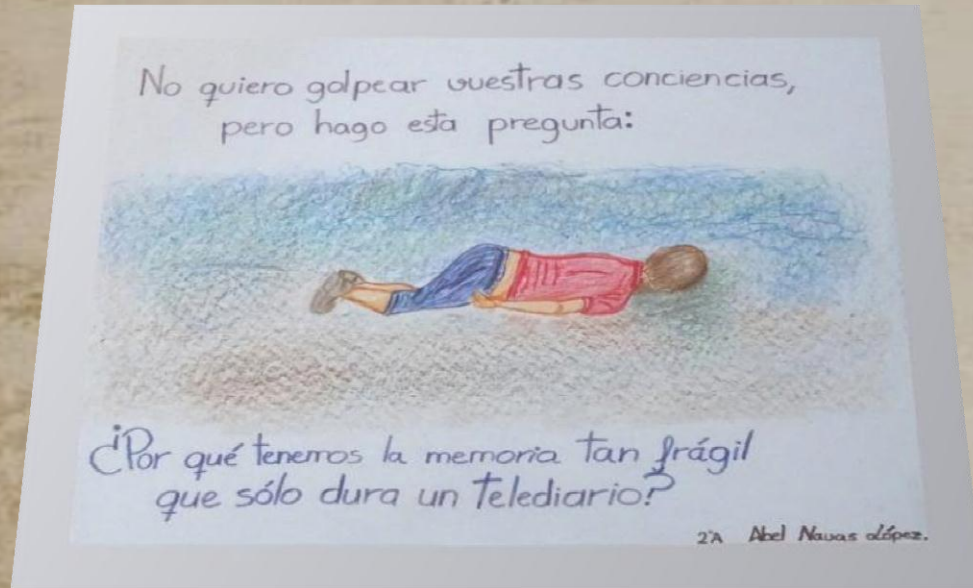 No quiero golpear vuestras conciencias,
pero hago esta pregunta:
¿Por qué tenemos la memoria tan frágil
que sólo dura un telediario?
2ºA Abel Navas López.